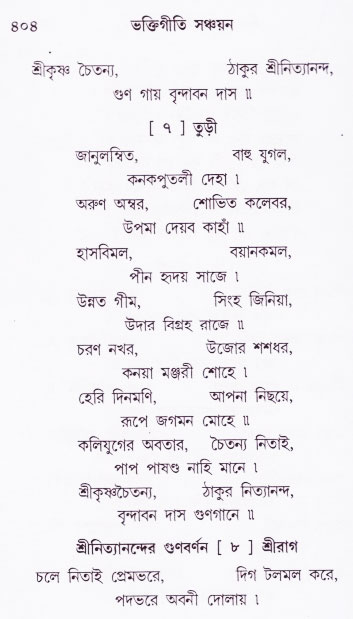 ৪০৪ ভক্তিগীতি সঞ্চয়ন
শ্রীকৃষ্ণ চৈতন্য, ঠাকুর শ্রীনিত্যানন্দ,
গুণ গায় বৃন্দাবন দাস ॥
[ ৭ ] তুড়ী
জানুলম্বিত, বাহু যুগল,
কনকপুতলী দেহা ।
অরুণ অম্বর, শোভিত কলেবর,
উপমা দেয়ব কাহাঁ ॥
হাসবিমল, বয়ানকমল,
পীন হৃদয় সাজে ।
উন্নত গীম, সিংহ জিনিয়া,
উদার বিগ্রহ রাজে ॥
চরণ নখর, উজোর শশধর,
কনয়া মঞ্জরী শোহে ।
হেরি দিনমণি, আপনা নিছয়ে,
রূপে জগমন মোহে ॥
কলিযুগের অবতার, চৈতন্য নিতাই,
পাপ পাষণ্ড নাহি মানে ।
শ্রীকৃষ্ণচৈতন্য, ঠাকুর নিত্যানন্দ,
বৃন্দাবন দাস গুণগানে ॥
শ্রীনিত্যানন্দের গুণবর্ণন [ ৮ ] শ্রীরাগ
চলে নিতাই প্রেমভরে, দিগ টলমল করে,
পদভরে অবনী দোলায় ।